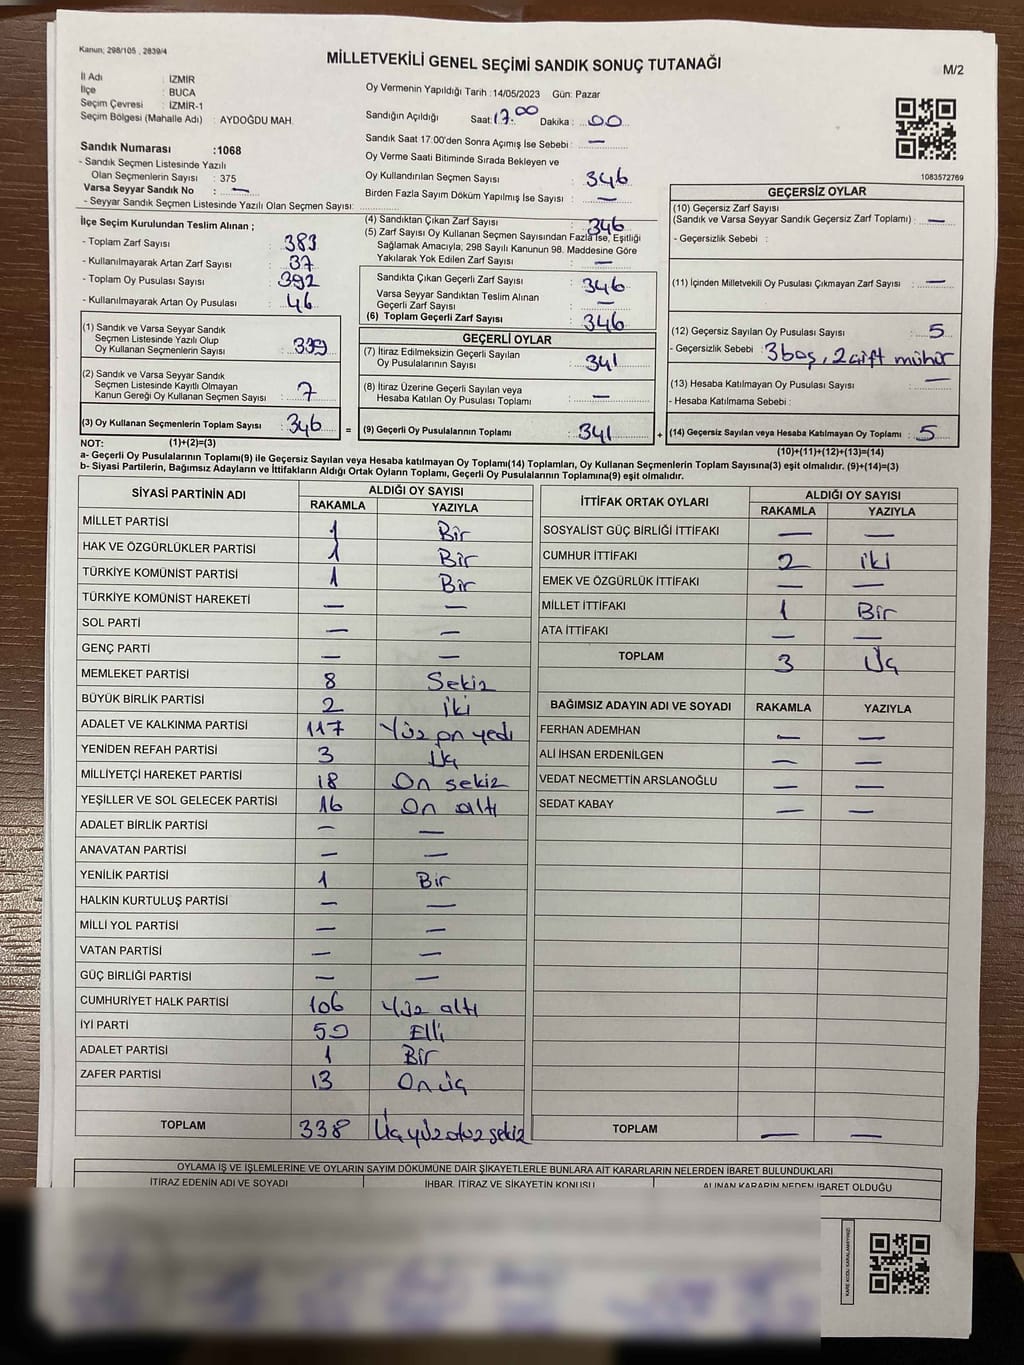 Kanun; 298/105 , 2839/4
MİLLETVEKİLİ GENEL SEÇİMİ SANDIK SONUÇ TUTANAĞI
M/2
İl Adı : İZMİR
İlçe : BUCA
Seçim Çevresi : İZMİR-1
Seçim Bölgesi (Mahalle Adı) : AYDOĞDU MAH.
Oy Vermenin Yapıldığı Tarih :14/05/2023 Gün: Pazar
Sandığın Açıldığı Saat: 17.00 Dakika : 00
Sandık Saat 17:00'den Sonra Açımış İse Sebebi : —
Oy Verme Saati Bitiminde Sırada Bekleyen ve
Oy Kullandırılan Seçmen Sayısı : 346
Birden Fazla Sayım Döküm Yapılmış İse Sayısı : —
Sandık Numarası :1068
- Sandık Seçmen Listesinde Yazılı
Olan Seçmenlerin Sayısı : 375
Varsa Seyyar Sandık No : —
- Seyyar Sandık Seçmen Listesinde Yazılı Olan Seçmen Sayısı:
1083572769
İlçe Seçim Kurulundan Teslim Alınan ;
- Toplam Zarf Sayısı : 383
- Kullanılmayarak Artan Zarf Sayısı : 37
- Toplam Oy Pusulası Sayısı : 392
- Kullanılmayarak Artan Oy Pusulası : 46
(1) Sandık ve Varsa Seyyar Sandık
Seçmen Listesinde Yazılı Olup
Oy Kullanan Seçmenlerin Sayısı : 339
(2) Sandık ve Varsa Seyyar Sandık
Seçmen Listesinde Kayıtlı Olmayan
Kanun Gereği Oy Kullanan Seçmen Sayısı : 7
(3) Oy Kullanan Seçmenlerin Toplam Sayısı : 346
(4) Sandıktan Çıkan Zarf Sayısı : 346
(5) Zarf Sayısı Oy Kullanan Seçmen Sayısından Fazla İse, Eşitliği
Sağlamak Amacıyla; 298 Sayılı Kanunun 98. Maddesine Göre
Yakılarak Yok Edilen Zarf Sayısı : —
Sandıkta Çıkan Geçerli Zarf Sayısı : 346
Varsa Seyyar Sandıktan Teslim Alınan
Geçerli Zarf Sayısı : —
(6) Toplam Geçerli Zarf Sayısı : 346
GEÇERLİ OYLAR
(7) İtiraz Edilmeksizin Geçerli Sayılan
Oy Pusulalarının Sayısı : 341
(8) İtiraz Üzerine Geçerli Sayılan veya
Hesaba Katılan Oy Pusulası Toplamı : —
= (9) Geçerli Oy Pusulalarının Toplamı : 341
GEÇERSİZ OYLAR
(10) Geçersiz Zarf Sayısı
(Sandık ve Varsa Seyyar Sandık Geçersiz Zarf Toplamı) : —
- Geçersizlik Sebebi :
(11) İçinden Milletvekili Oy Pusulası Çıkmayan Zarf Sayısı : —
(12) Geçersiz Sayılan Oy Pusulası Sayısı : 5
- Geçersizlik Sebebi : 3 boş, 2 çift mühür
(13) Hesaba Katılmayan Oy Pusulası Sayısı : —
- Hesaba Katılmama Sebebi :
+ (14) Geçersiz Sayılan veya Hesaba Katılmayan Oy Toplamı : 5
NOT: (1)+(2)=(3) (10)+(11)+(12)+(13)=(14)
a- Geçerli Oy Pusulalarının Toplamı(9) ile Geçersiz Sayılan veya Hesaba katılmayan Oy Toplamı(14) Toplamları, Oy Kullanan Seçmenlerin Toplam Sayısına(3) eşit olmalıdır. (9)+(14)=(3)
b- Siyasi Partilerin, Bağımsız Adayların ve İttifakların Aldığı Ortak Oyların Toplamı, Geçerli Oy Pusulalarının Toplamına(9) eşit olmalıdır.
SİYASİ PARTİNİN ADI ALDIĞI OY SAYISI
RAKAMLA YAZIYLA
MİLLET PARTİSİ 1 Bir
HAK VE ÖZGÜRLÜKLER PARTİSİ 1 Bir
TÜRKİYE KOMÜNİST PARTİSİ 1 Bir
TÜRKİYE KOMÜNİST HAREKETİ — —
SOL PARTİ — —
GENÇ PARTİ — —
MEMLEKET PARTİSİ 8 Sekiz
BÜYÜK BİRLİK PARTİSİ 2 iki
ADALET VE KALKINMA PARTİSİ 117 Yüz on yedi
YENİDEN REFAH PARTİSİ 3 Üç
MİLLİYETÇİ HAREKET PARTİSİ 18 On sekiz
YEŞİLLER VE SOL GELECEK PARTİSİ 16 On altı
ADALET BİRLİK PARTİSİ — —
ANAVATAN PARTİSİ — —
YENİLİK PARTİSİ 1 Bir
HALKIN KURTULUŞ PARTİSİ — —
MİLLİ YOL PARTİSİ — —
VATAN PARTİSİ — —
GÜÇ BİRLİĞİ PARTİSİ — —
CUMHURİYET HALK PARTİSİ 106 Yüz altı
İYİ PARTİ 50 Elli
ADALET PARTİSİ 1 Bir
ZAFER PARTİSİ 13 On üç
TOPLAM 338 Üç yüz otuz sekiz
İTTİFAK ORTAK OYLARI ALDIĞI OY SAYISI
RAKAMLA YAZIYLA
SOSYALİST GÜÇ BİRLİĞİ İTTİFAKI — —
CUMHUR İTTİFAKI 2 iki
EMEK VE ÖZGÜRLÜK İTTİFAKI — —
MİLLET İTTİFAKI 1 Bir
ATA İTTİFAKI — —
TOPLAM 3 Üç
BAĞIMSIZ ADAYIN ADI VE SOYADI RAKAMLA YAZIYLA
FERHAN ADEMHAN — —
ALİ İHSAN ERDENİLGEN — —
VEDAT NECMETTİN ARSLANOĞLU — —
SEDAT KABAY — —
TOPLAM — —
OYLAMA İŞ VE İŞLEMLERİNE VE OYLARIN SAYIM DÖKÜMÜNE DAİR ŞİKAYETLERLE BUNLARA AİT KARARLARIN NELERDEN İBARET BULUNDUKLARI
İTİRAZ EDENİN ADI VE SOYADI İHBAR, İTİRAZ VE ŞİKAYETİN KONUSU ALINAN KARARIN NEDEN İBARET OLDUĞU